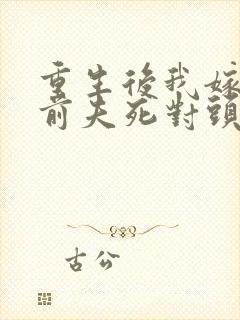 重生後我嫁
前夫死對頭
古公